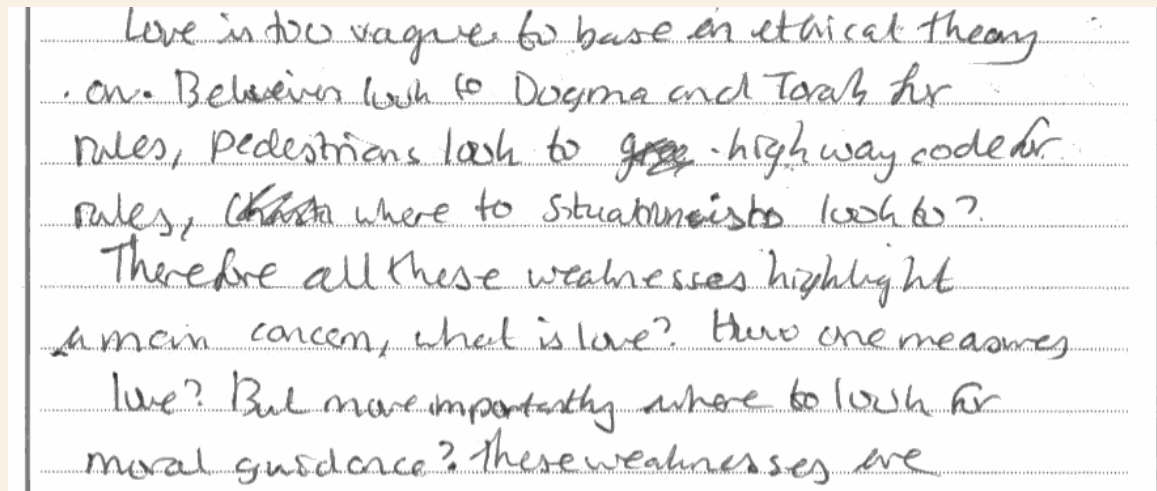 Love is too vague to base an ethical theory
on. Believers look to Dogma and Torah for
rules, pedestrians look to highway code for
rules, where to Situationists look to?
Therefore all these weaknesses highlight
a main concern, what is love? How one measures
love? But more importantly where to look for
moral guidance? These weaknesses are